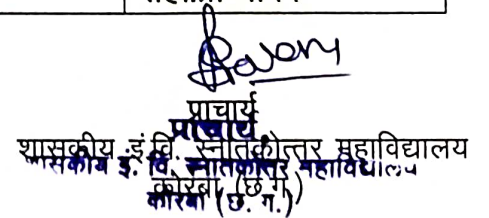 प्राचार्य
प्राचार्य
शासकीय इं.वि. स्नातकोत्तर महाविद्यालय
शासकीय इं. वि. स्नातकोत्तर महाविद्यालय
कोरबा (छ.ग.)
कोरबा (छ. ग.)